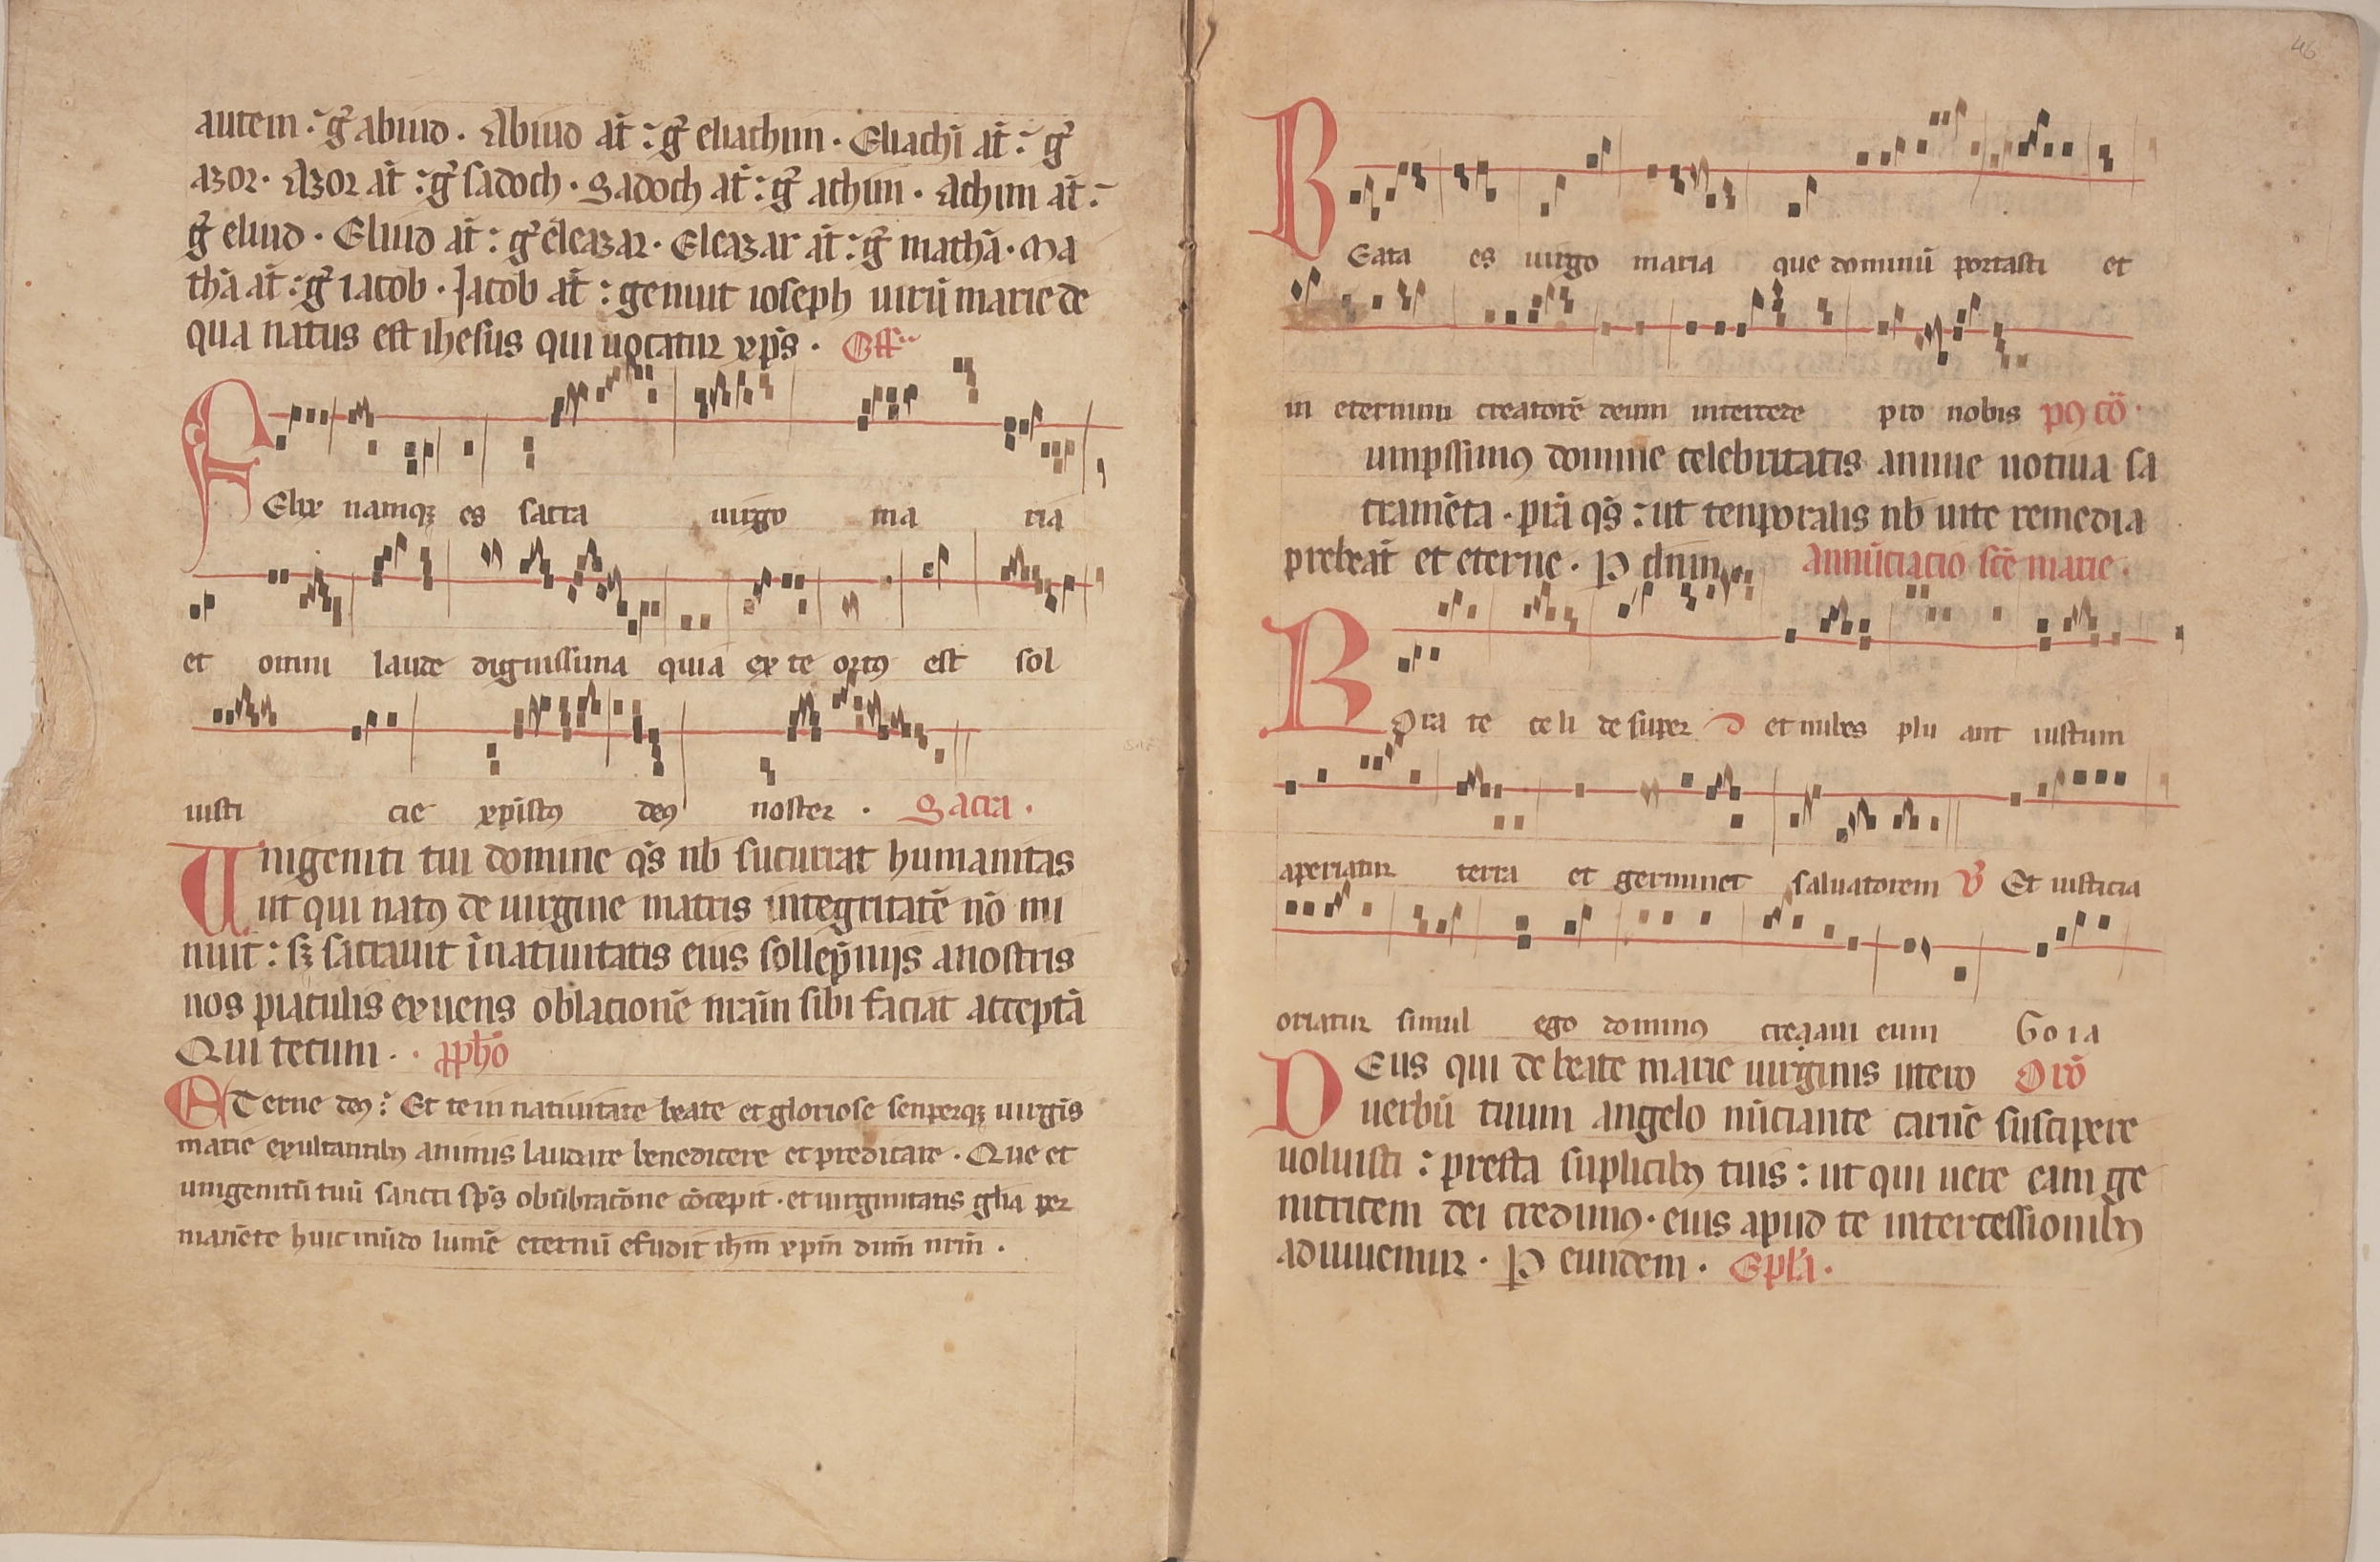 autem : gͣ abiud . Abiud at̄ : gͣ eliachim . Eliachī at̄ : gͣ
azor . Azor at̄ : gͣ sadoch . Sadoch at̄ : gͣ achim . Achim at̄ :
gͣ eliud . Eliud at̄ : gͣ eleazar . Eleazar at̄ : gͣ mathā . Ma
thā at̄ : gͣ iacob . Jacob at̄ : genuit ioseph uirū marie de
qua natus est ihesus qui uocatur xp̄s . Off
FElix namqꝫ es sacra uirgo ma ria
et omni laude dignissima quia ex te ortꝰ est sol
iusti cie xp̄istꝰ deꝰ noster . Sacra .
Vnigeniti tui domine qs̄ nb̄ sucurrat humanitas
ut qui natꝰ de uirgine matris integritatē nō mi
nuit : sꝫ sacrauit ī natiuitatis eius sollep̄niis a nostris
nos piaculis exuens oblacionē nr̄am sibi faciat acceptā
Qui tecum . p̄pho
ETerne deꝰ : Et te in natiuitate beate et gloriose semperqꝫ uirgīs
marie exultantibꝰ animis laudare benedicere et predicare . Que et
unigenitū tuū sancti sp̄s obūbracōne cōcepit . et uirginitatis gl̄ia per
manēte huic mūdo lumē eternū efudit ih̄m xp̄m dn̄m nr̄m .
46
BEata es uirgo maria que dominū portasti et
in eternum creatorē deum intercede pro nobis pꝰ cō .
umpsimꝰ domine celebritatis annue uotiua sa
cramēta . pr̄a qs̄ : ut temporalis nb̄ uite remedia
prebeāt et eterne . P dnm annūciacio scē marie .
ROra te celi de super et nubes plu ant iustum
aperiatur terra et germinet saluatorem V Et iusticia
oriatur simul ego dominꝰ creaui eum Gloria
DEus qui de beate marie uirginis utero Orō
uerbū tuum angelo nūciante carnē suscipere
uoluisti : presta suplicibꝰ tuis : ut qui uere eam ge
nitricem dei credimꝰ . eius apud te intercessionibꝰ
adiuuemur . P eundem . Epl̄a .